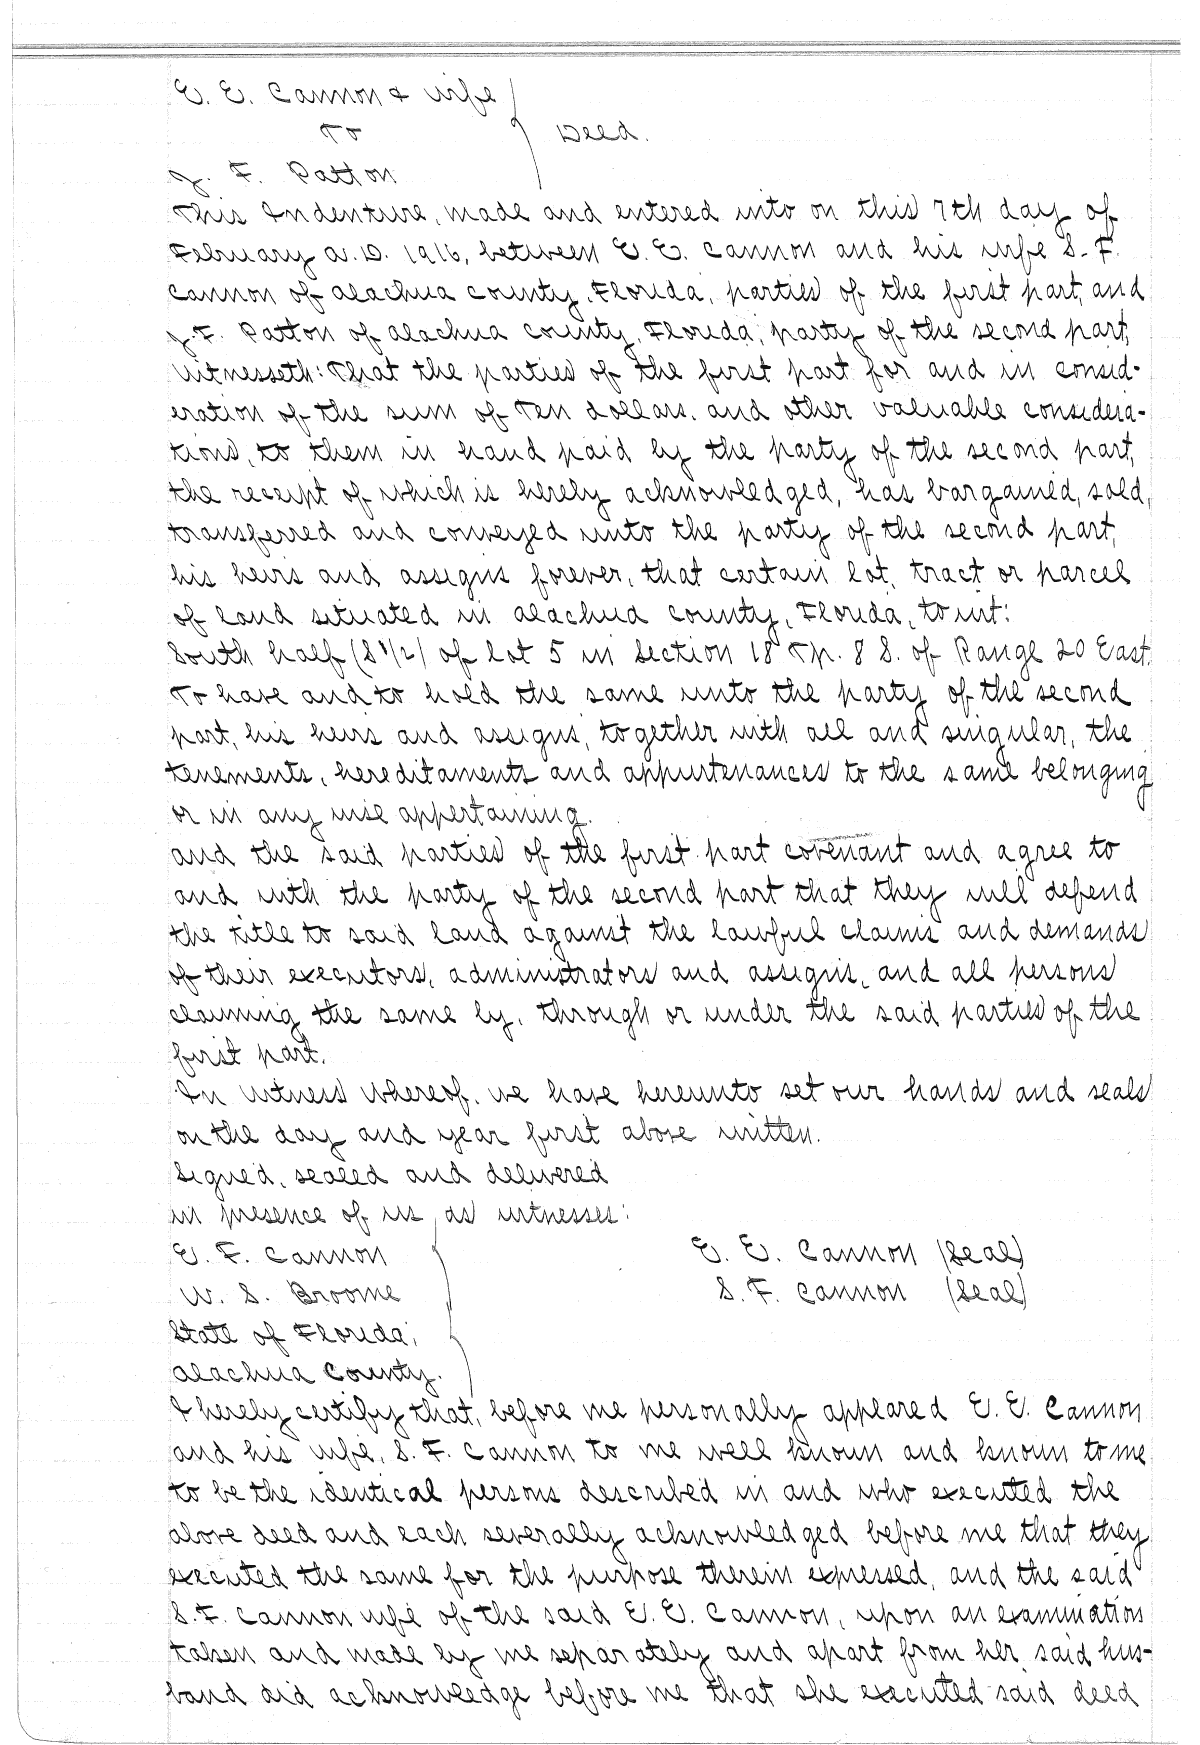 E. E. Cannon & wife
To
Deed.
J. F. Patton
This Indenture, made and entered into on this 7th day of
February A. D. 1916, between E. E. Cannon and his wife S. F.
Cannon of Alachua County, Florida, parties of the first part, and
J. F. Patton of Alachua County, Florida, party of the second part,
Witnesseth: That the parties of the first part for and in consid-
eration of the sum of Ten dollars. and other valuable considera-
tions, to them in hand paid by the party of the second part,
the receipt of which is hereby acknowledged, has bargained, sold,
transferred and conveyed unto the party of the second part,
his heirs and assigns forever, that certain lot, tract or parcel
of land situated in Alachua County, Florida, to wit:
South half (S 1/2) of Lot 5 in Section 18 Tp. 8 S. of Range 20 East.
To have and to hold the same unto the party of the second
part, his heirs and assigns, together with all and singular, the
tenements, hereditaments and appurtenances to the same belonging
or in any wise appertaining.
And the said parties of the first part covenant and agree to
and with the party of the second part that they will defend
the title to said land against the lawful claims and demands
of their executors, administrators and assigns, and all persons
claiming the same by, through or under the said parties of the
first part.
In witness whereof, we have hereunto set our hands and seals
on the day and year first above written.
Signed, sealed and delivered
in presence of us, as witnesses:
E. F. Cannon E. E. Cannon (Seal)
W. S. Broome S. F. Cannon (Seal)
State of Florida,
Alachua County.
I hereby certify that, before me personally appeared E. E. Cannon
and his wife, S. F. Cannon to me well known and known to me
to be the identical persons described in and who executed the
above deed and each severally acknowledged before me that they
executed the same for the purpose therein expressed, and the said
S. F. Cannon wife of the said E. E. Cannon, upon an examination
taken and made by me separately and apart from her said hus-
band did acknowledge before me that she executed said deed